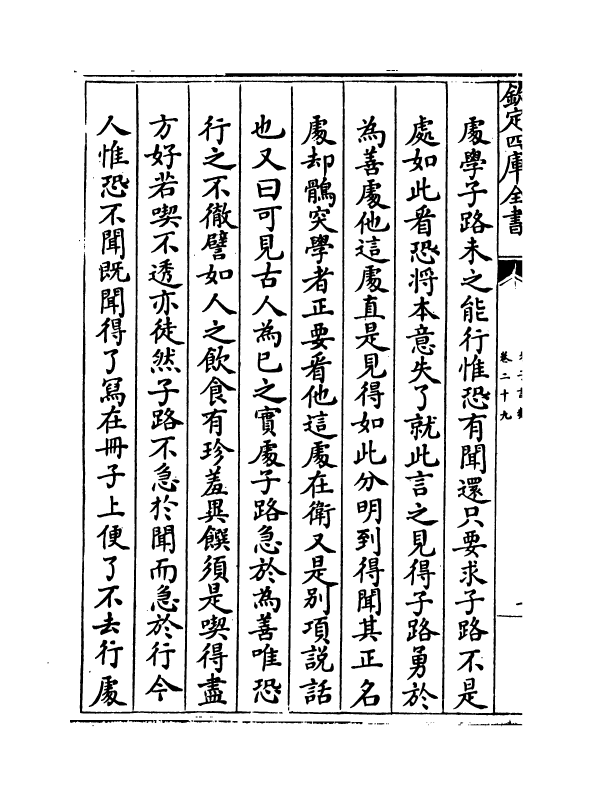 欽定四庫全書
卷二十九
處學子路未之能行惟恐有聞還只要求子路不是
處如此看恐將本意失了就此言之見得子路勇於
為善處他這處直是見得如此分明到得聞其正名
處却鶻突學者正要看他這處在衛又是别項說話
也又曰可見古人為已之實處子路急於為善唯恐
行之不徹譬如人之飲食有珍羞異饌須是喫得盡
方好若喫不透亦徒然子路不急於聞而急於行今
人惟恐不聞既聞得了冩在冊子上便了不去行處